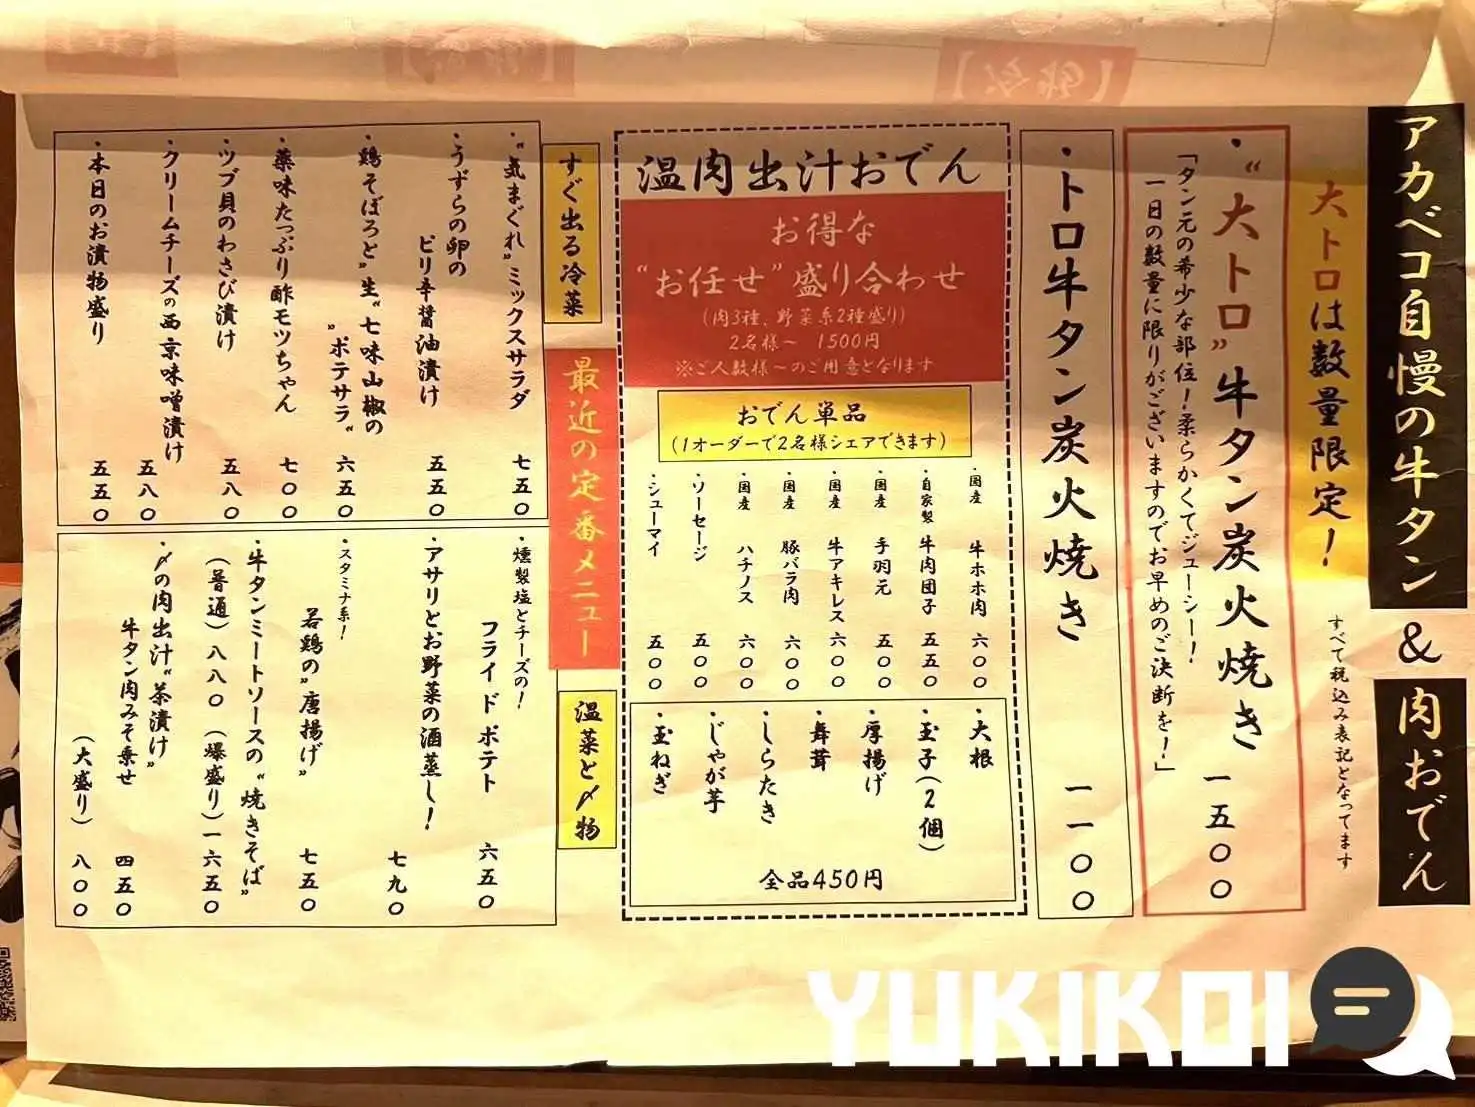 アカベコ自慢の牛タン&肉おでん
すべて税込み表記となってます
大トロは数量限定！
・“大トロ”牛タン炭火焼き 一五〇〇
「タン元の希少な部位！柔らかくてジューシー！
一日の数量に限りがございますのでお早めのご決断を！」
・トロ牛タン炭火焼き 一一〇〇
温肉出汁おでん
お得な
“お任せ”盛り合わせ
(肉3種、野菜系2種盛り)
2名様〜 1500円
※ご人数様〜のご用意となります
おでん単品
(1オーダーで2名様シェアできます)
・国産 牛ホホ肉 六〇〇
・自家製 牛肉団子 五五〇
・国産 手羽元 五〇〇
・国産 牛アキレス 六〇〇
・国産 豚バラ肉 六〇〇
・国産 ハチノス 六〇〇
・ソーセージ 五〇〇
・シューマイ 五〇〇
・大根
・玉子(2個)
・厚揚げ
・舞茸
・しらたき
・じゃが芋
・玉ねぎ
全品450円
最近の定番メニュー
すぐ出る冷菜
・“気まぐれ”ミックスサラダ 七五〇
・うずらの卵の
ピリ辛醤油漬け 五五〇
・鶏そぼろと”生“七味山椒の
”ポテサラ“ 六五〇
・薬味たっぷり酢モツちゃん 七〇〇
・ツブ貝のわさび漬け 五八〇
・クリームチーズの西京味噌漬け 五八〇
・本日のお漬物盛り 五五〇
温菜と〆物
・燻製塩とチーズの！
フライドポテト 六五〇
・アサリとお野菜の酒蒸し！ 七九〇
・スタミナ系！
若鶏の”唐揚げ” 七五〇
・牛タンミートソースの“焼きそば”
(普通)八八〇 (爆盛り)一六五〇
・〆の肉出汁“茶漬け”
牛タン肉みそ乗せ 四五〇
(大盛り) 八〇〇
YUKIKOI